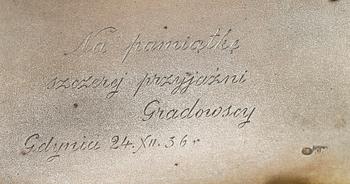 Na pamiątkę
szczerej przyjaźni
Gradowscy
Gdynia 24.XII.36 r